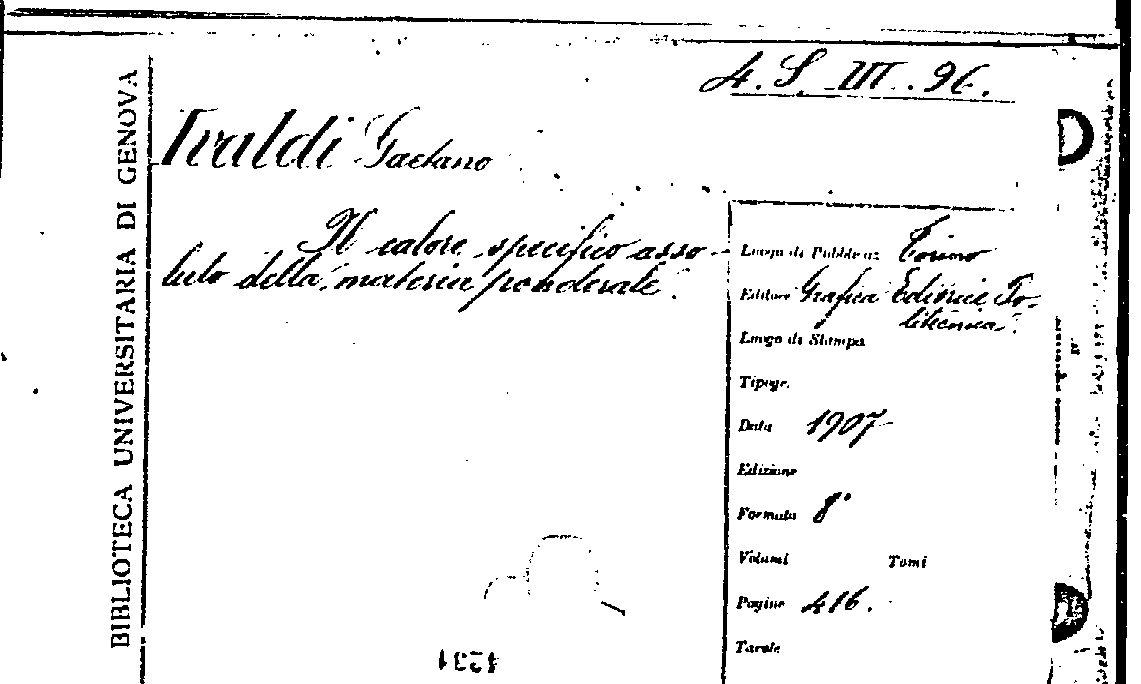 4. S. III. 96.
BIBLIOTECA UNIVERSITARIA DI GENOVA
Ivaldi Gaetano
Il calore specifico asso-
luto della materia ponderale.
Luogo di Pubblicaz. Torino
Editore Grafica Editrice Po-
litecnica.
Luogo di Stampa
Tipogr.
Data 1907
Edizione
Formato 8°
Volumi Tomi
Pagine 416.
Tavole